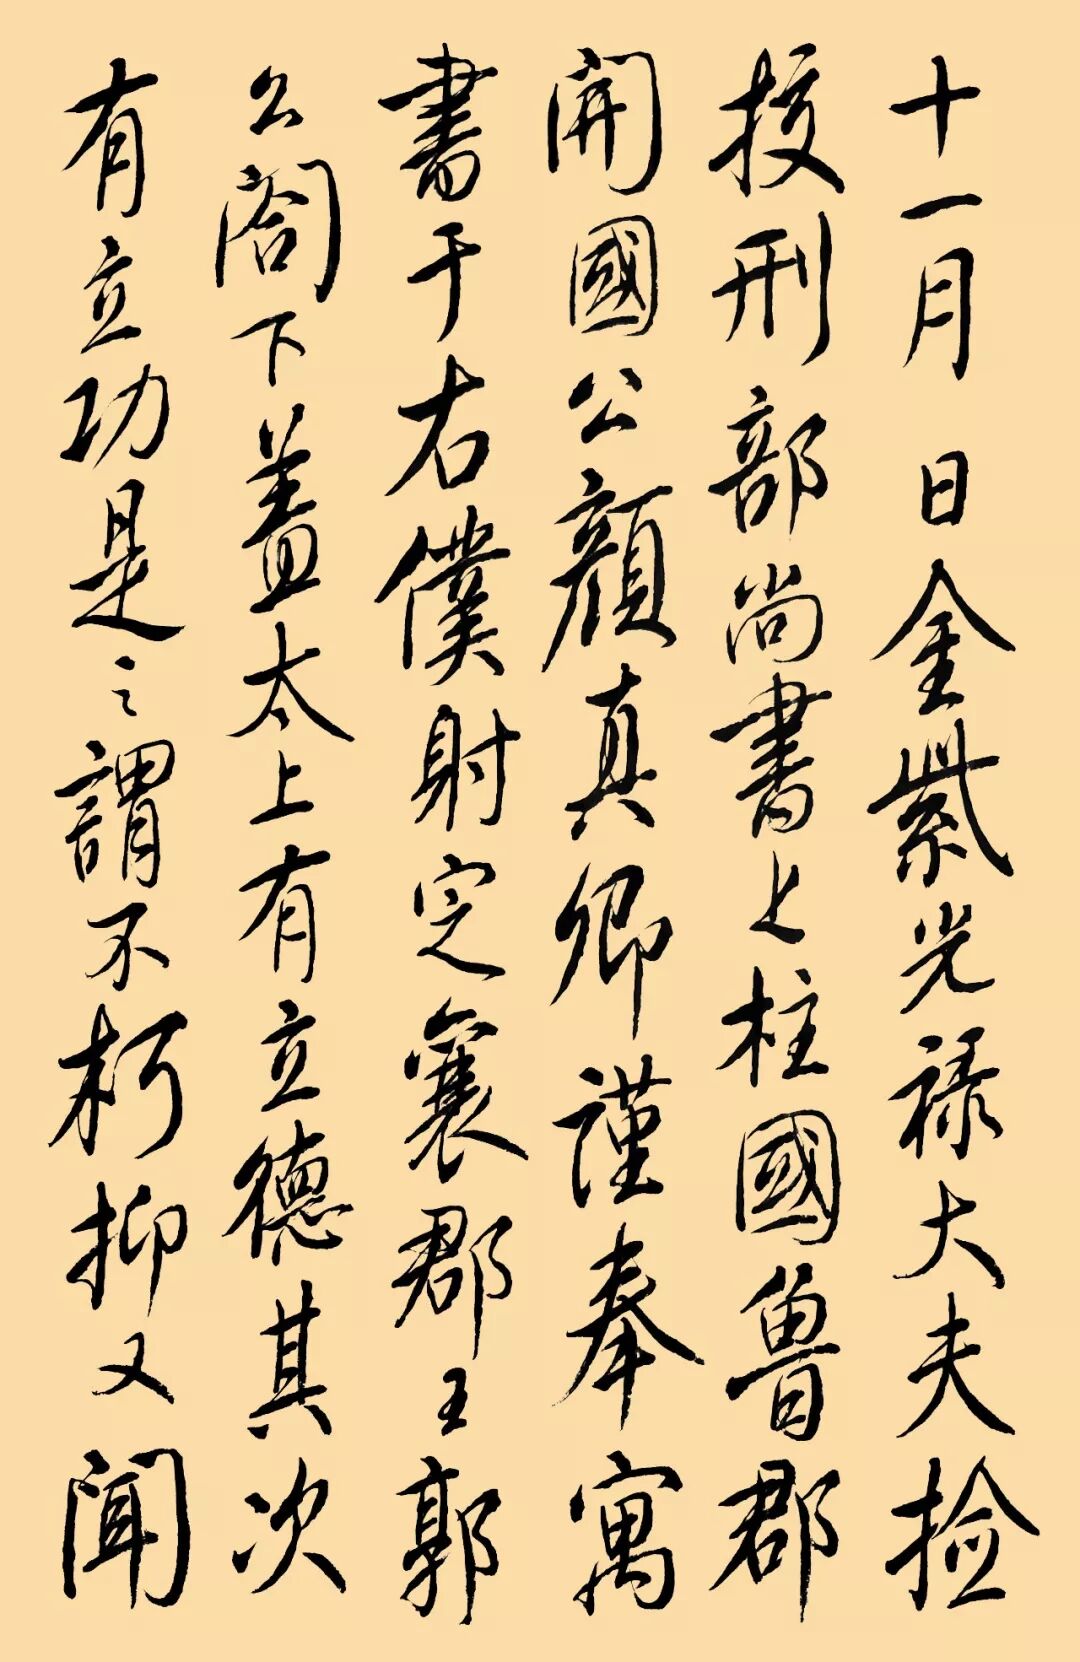 十一月 日金紫光禄大夫捡
挍刑部尚書上柱國魯郡
開國公顔真卿謹奉寓
書于右僕射定襄郡王郭
公閤下蓋太上有立德其次
有立功是之謂不朽抑又聞